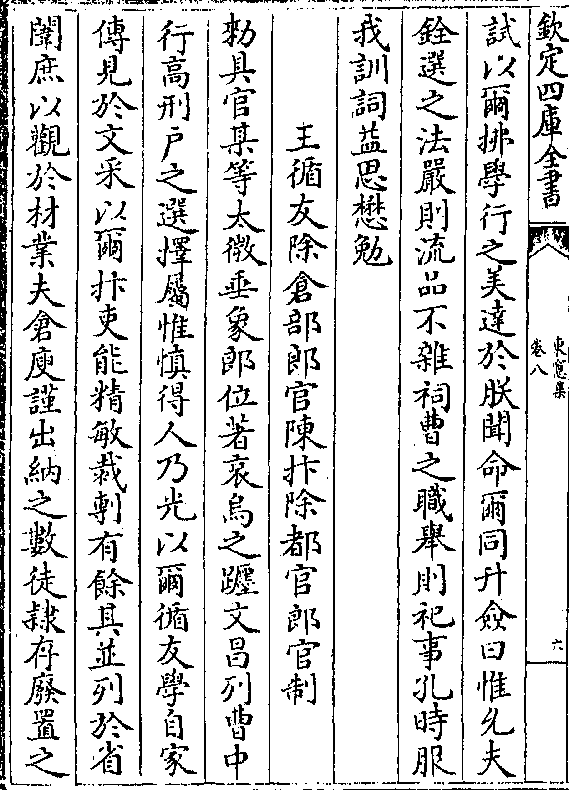 欽定四庫全書
東窻集
卷八
六
試以爾拂學行之美達於朕聞命爾同升僉曰惟允夫
銓選之法嚴則流品不雜祠曹之職舉則祀事孔時服
我訓詞益思懋勉
王循友除倉部郎官陳抃除都官郎官制
勑具官某等太微垂象郎位著哀烏之躔文昌列曹中
行高刑户之選擇屬惟慎得人乃光以爾循友學自家
傳見於文采以爾抃吏能精敏裁剸有餘具並列於省
闈庶以觀於材業夫倉庾謹出納之數徒隷存廢置之